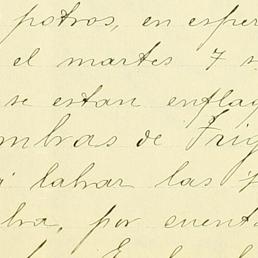 potros, en esper
el martes 7 s
se estan enflaq
ombras de Trig
labrar las
bra, por cuenta